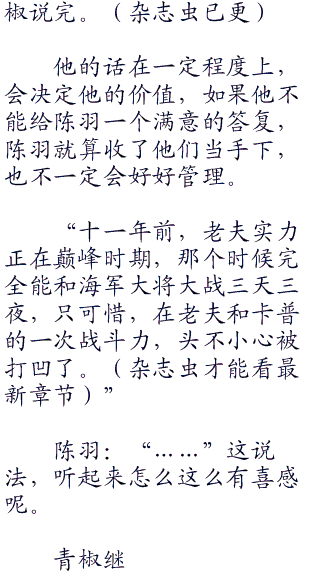 椒说完。（杂志虫已更）
他的话在一定程度上，
会决定他的价值，如果他不
能给陈羽一个满意的答复，
陈羽就算收了他们当手下，
也不一定会好好管理。
“十一年前，老夫实力
正在巅峰时期，那个时候完
全能和海军大将大战三天三
夜，只可惜，在老夫和卡普
的一次战斗力，头不小心被
打凹了。（杂志虫才能看最
新章节）”
陈羽：“……”这说
法，听起来怎么这么有喜感
呢。
青椒继